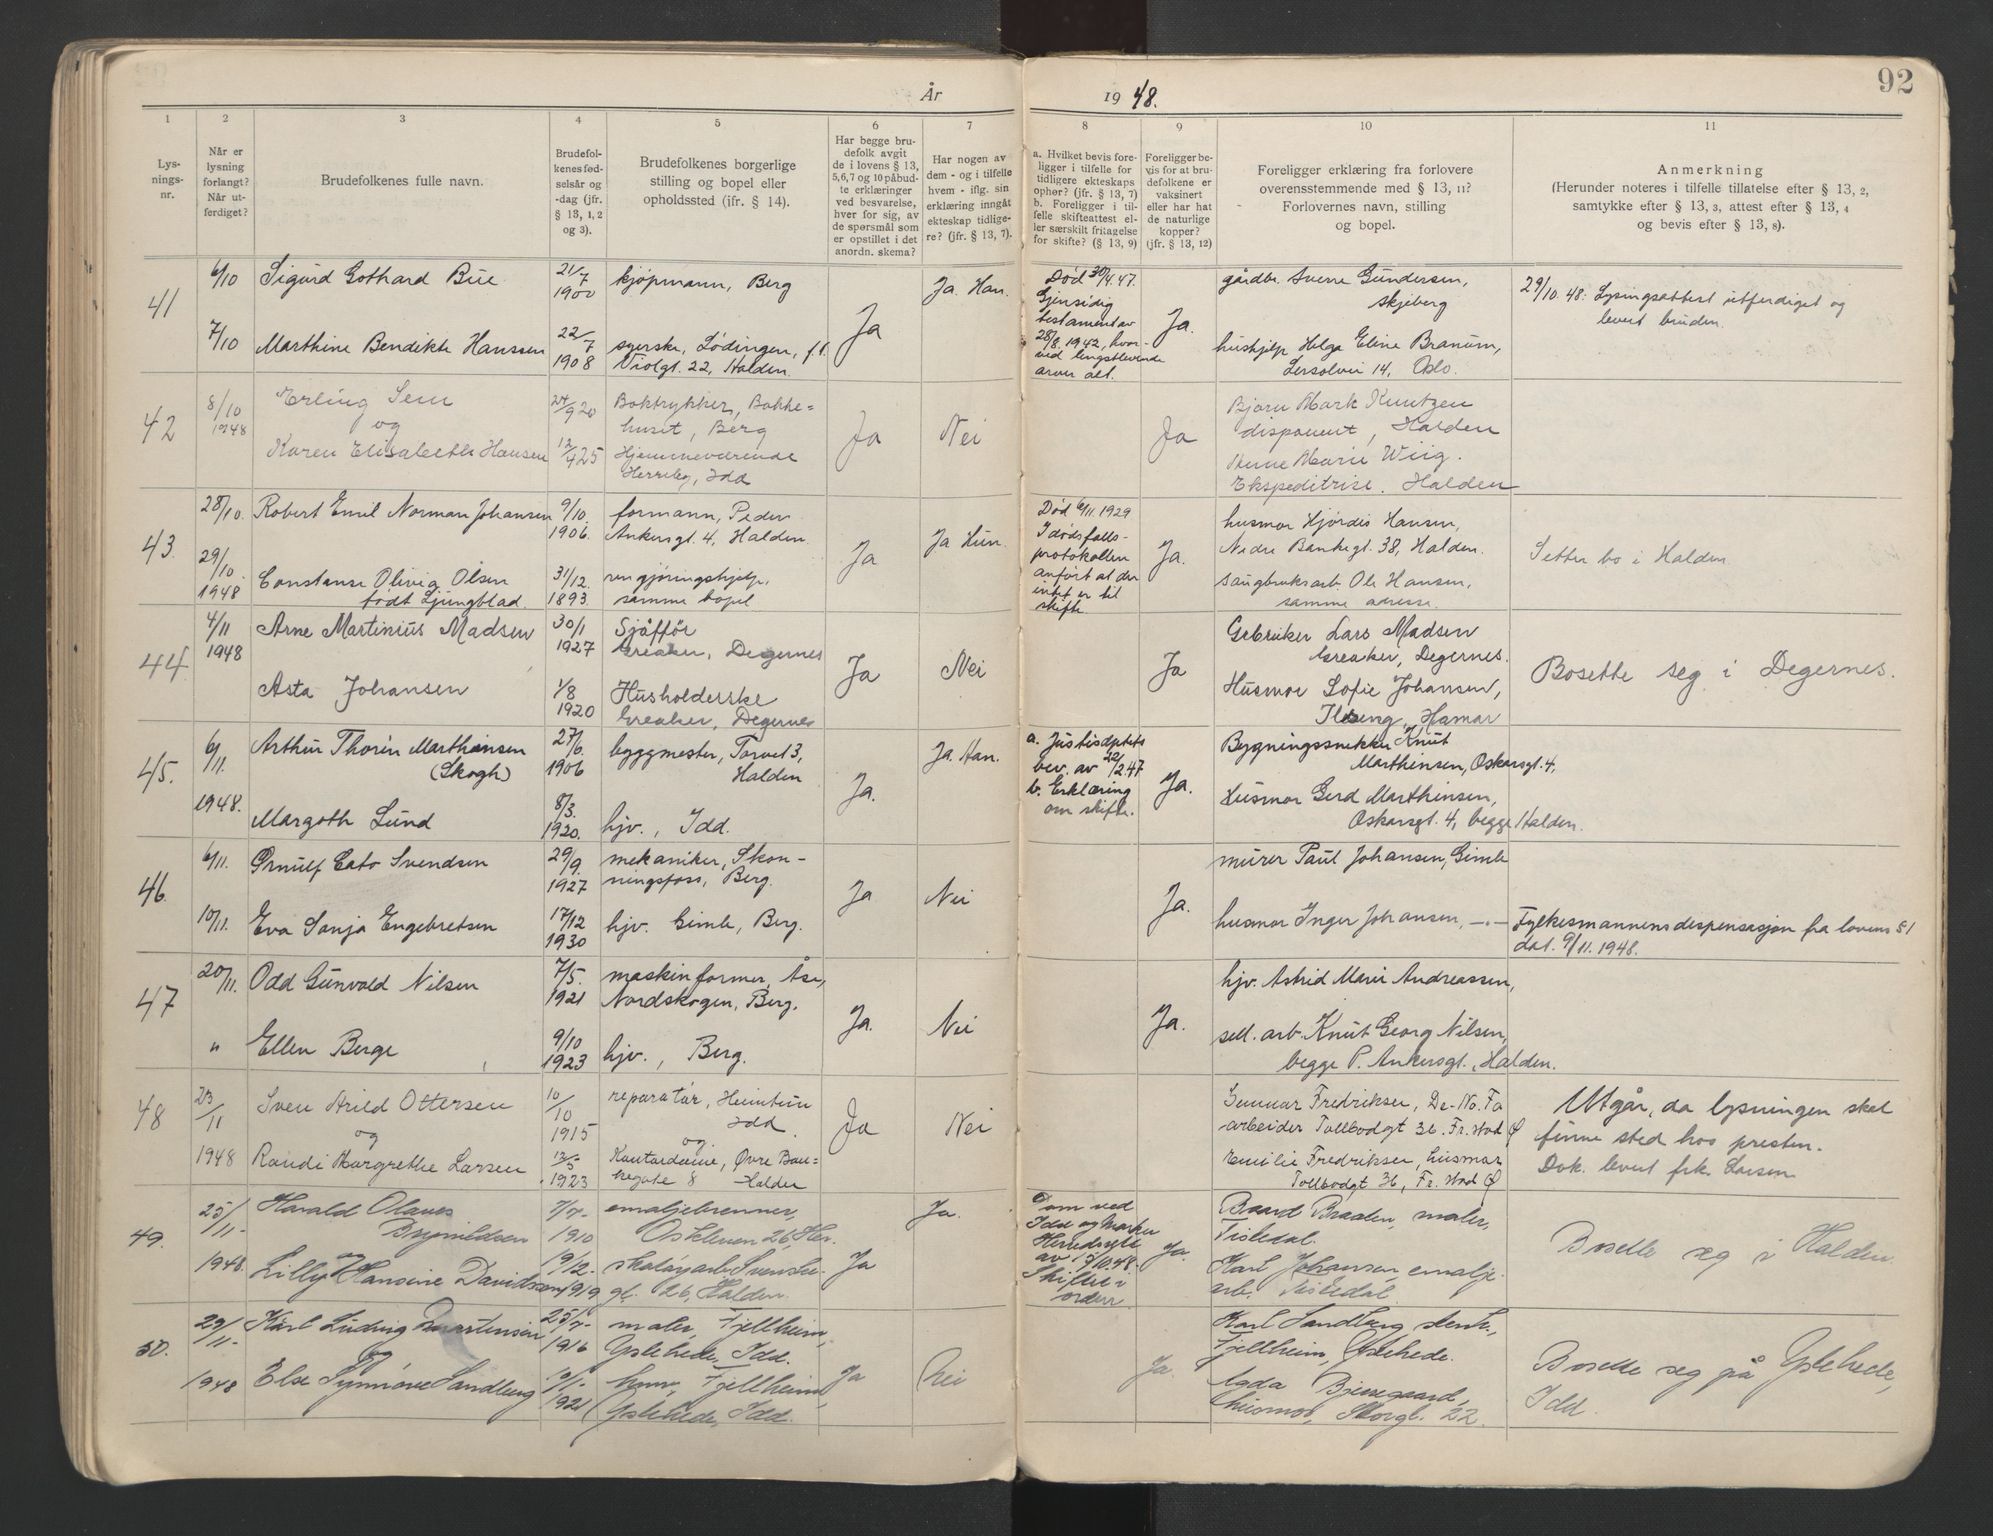 92
År 1948.
1
2
3
4
5
6
7
8
9
10
11
Lys-
nings-
nr.
Når er
lysning
forlangt?
Når ut-
ferdiget?
Brudefolkenes fulle navn.
Brudefol-
kenes fød-
selsår og
-dag (jfr.
§ 13, 1, 2
og 3).
Brudefolkenes borgerlige
stilling og bopel eller
opholdssted (jfr. § 14).
Har begge bru-
defolk avgit
de i lovens § 13,
5,6,7 og 10 påbud-
te erklæringer
ved besvarelse,
hver for sig, av
de spørsmål som
er opstillet i det
anordn. skema?
Har nogen av
dem - og i tilfelle
hvem - iflg. sin
erklæring inngåt
ekteskap tidlige-
re? (jfr. § 13, 7).
a. Hvilket bevis fore-
ligger i tilfelle for
tidligere ekteskaps
ophør? (jfr. § 13, 7)
b. Foreligger i til-
felle skifteattest el-
ler særskilt fritagelse
for skifte? (§ 13, 9)
Foreligger be-
vis for at bru-
defolkene er
vaksinert
eller har hat
de naturlige
kopper?
(jfr. § 13, 12)
Foreligger erklæring fra forlovere
overensstemmende med § 13, 11?
Forlovernes navn, stilling
og bopel.
Anmerkning
(Herunder noteres i tilfelle tillatelse efter § 13, 2,
samtykke efter § 13, 3, attest efter § 13, 4
og bevis efter § 13, 8).
41
6/10
7/10
Sigurd Gothard Bue
Marthine Bendikte Hanssen
21/7
1900
22/7
1908
kjøpmann, Berg
syerske, Lødingen, f.t.
Violgt. 22, Halden.
Ja
Ja. Han.
Død 30/4.47.
Gjensidig
testament av
28/8.1942, hvor-
ved lengstlevende
arver alt.
Ja.
gårdbr. Sverre Gundersen,
Skjeberg
hushjelp Helga Eline Branum,
14, Oslo.
29/10.48. Lysingsattest utferdiget og
levert bruden.
42
8/10
1948
Erling Sem
og
Karen Elisabeth Hansen
24/9 20
12/4 25
Boktrykker, Bakke-
huset, Berg
Hjemmeværende
Herrebg, Idd
Ja
Nei
Ja
Bjørn Mark Kuntzen
disponent, Halden
Anne Marie Wiig.
Ekspeditrise. Halden
43.
28/10.
29/10.
1948
Robert Emil Norman Johansen
Constanse Olivia Olsen
født Ljungblad.
9/10.
1906.
31/12.
1893.
formann, Peder
Ankersgt. 4, Halden.
rengjøringshjelp,
samme bopel
Ja
Ja Hun.
Død 6/11.1929
I dødsfalls-
protokollen
anført at der
intet er til
skifte
Ja.
husmor Hjørdis Hansen,
Nedre Bankegt. 38, Halden.
saugbruksarb. Ole Hansen,
samme adresse.
Setter bo i Halden
44.
4/11
1948
Arne Martinius Madsen
Asta Johansen
30/1
1927
1/8
1920
Sjåffør
Kreaker, Degernes
Husholderske
Kreaker, Degernes
Ja
Nei
Ja
Grbruker Lars Madsen
Kreaker, Degernes.
Husmor Sofie Johansen,
Ilseng, Hamar
Bosette seg i Degernes.
45.
6/11.
1948.
Arthur Thorin Marthinsen
(Skogh)
Margoth Lund
27/6.
1906
8/3.
1920.
byggmester, Torvet 3,
Halden
hjv., Idd.
Ja.
Ja. Han.
a. Justisdptets
bev. av 22/2.47
b. Erklæring
om skifte.
Ja.
Bygningssnekker Knut
Marthinsen, Oskarsgt. 4,
Husmor Gerd Marthinsen,
Oskarsgt. 4, begge Halden.
46.
6/11.
10/11.
Ørnulf Cato Svendsen
Eva Sonja Engebretsen
29/9.
1927
17/12
1930
mekaniker, Skon-
ningsfoss, Berg.
hjv. Gimle, Berg.
Ja
Nei
Ja.
murer Paul Johansen, Gimle
husmor Inger Johansen, -"-
Fylkesmannens dispensasjon fra lovens § 1
dat. 9/11.1948.
47
20/11.
"
Odd Gunvald Nilsen
Ellen Berge
7/5.
1921
9/10
1923
maskinformer, Åse,
Nordskogen, Berg.
hjv., Berg.
Ja.
Nei
Ja.
hjv. Astrid Marie Andreassen,
sell. arb. Knut Georg Nilsen,
begge P. Ankersgt., Halden.
48
23/11
1948
Sven Arild Ottersen
og
Randi Margrethe Larsen
10/10
1915
1923
reparatør, Heimtun
Idd
og
Kontordame, Øvre Ban-
kegate 8 Halden
Ja
Nei
Gunnar Fredriksen, De-No-Fa
arbeider Tollbodgt 36. Fr.stad Ø
Emilie Fredriksen, husmor
Tollbodgt 36, Fr. stad Ø
Utgår, da lysningen skal
finne sted hos presten.
Dok. levert frk. Larsen
49.
25/11-
1948.
Harald Olaves
Brynildsen
og
Lilly Hansine Davidsen
1910
19/12-
1919
emaljebrenner,
Oskleven 26, Her.
skotøyarb. Svenske-
gt. 26, Halden.
Ja
Ja.
Dom ved
Idd og Marker
Herredsrett
av 15/10.48.
Skiftet i
orden
Ja.
Baard Braaten, maler,
Tistedal.
Karl Johansen, emalje-
arb. Tistedal
Bosette seg i Halden
50.
29/11-
1948
Karl Ludvig Martinsen
og
Else Synnøve Sandberg
1916
1921
maler, Fjellheim,
Yslehede, Idd.
hmv, Fjellheim,
Yslehede, Idd.
Ja
Nei
Ja.
Karl Sandberg stenh.,
Fjellheim, Yslehede.
Agda Bjerregaard,
husmor, Storgt. 22.
Bosette seg på Yslehede,
Idd.